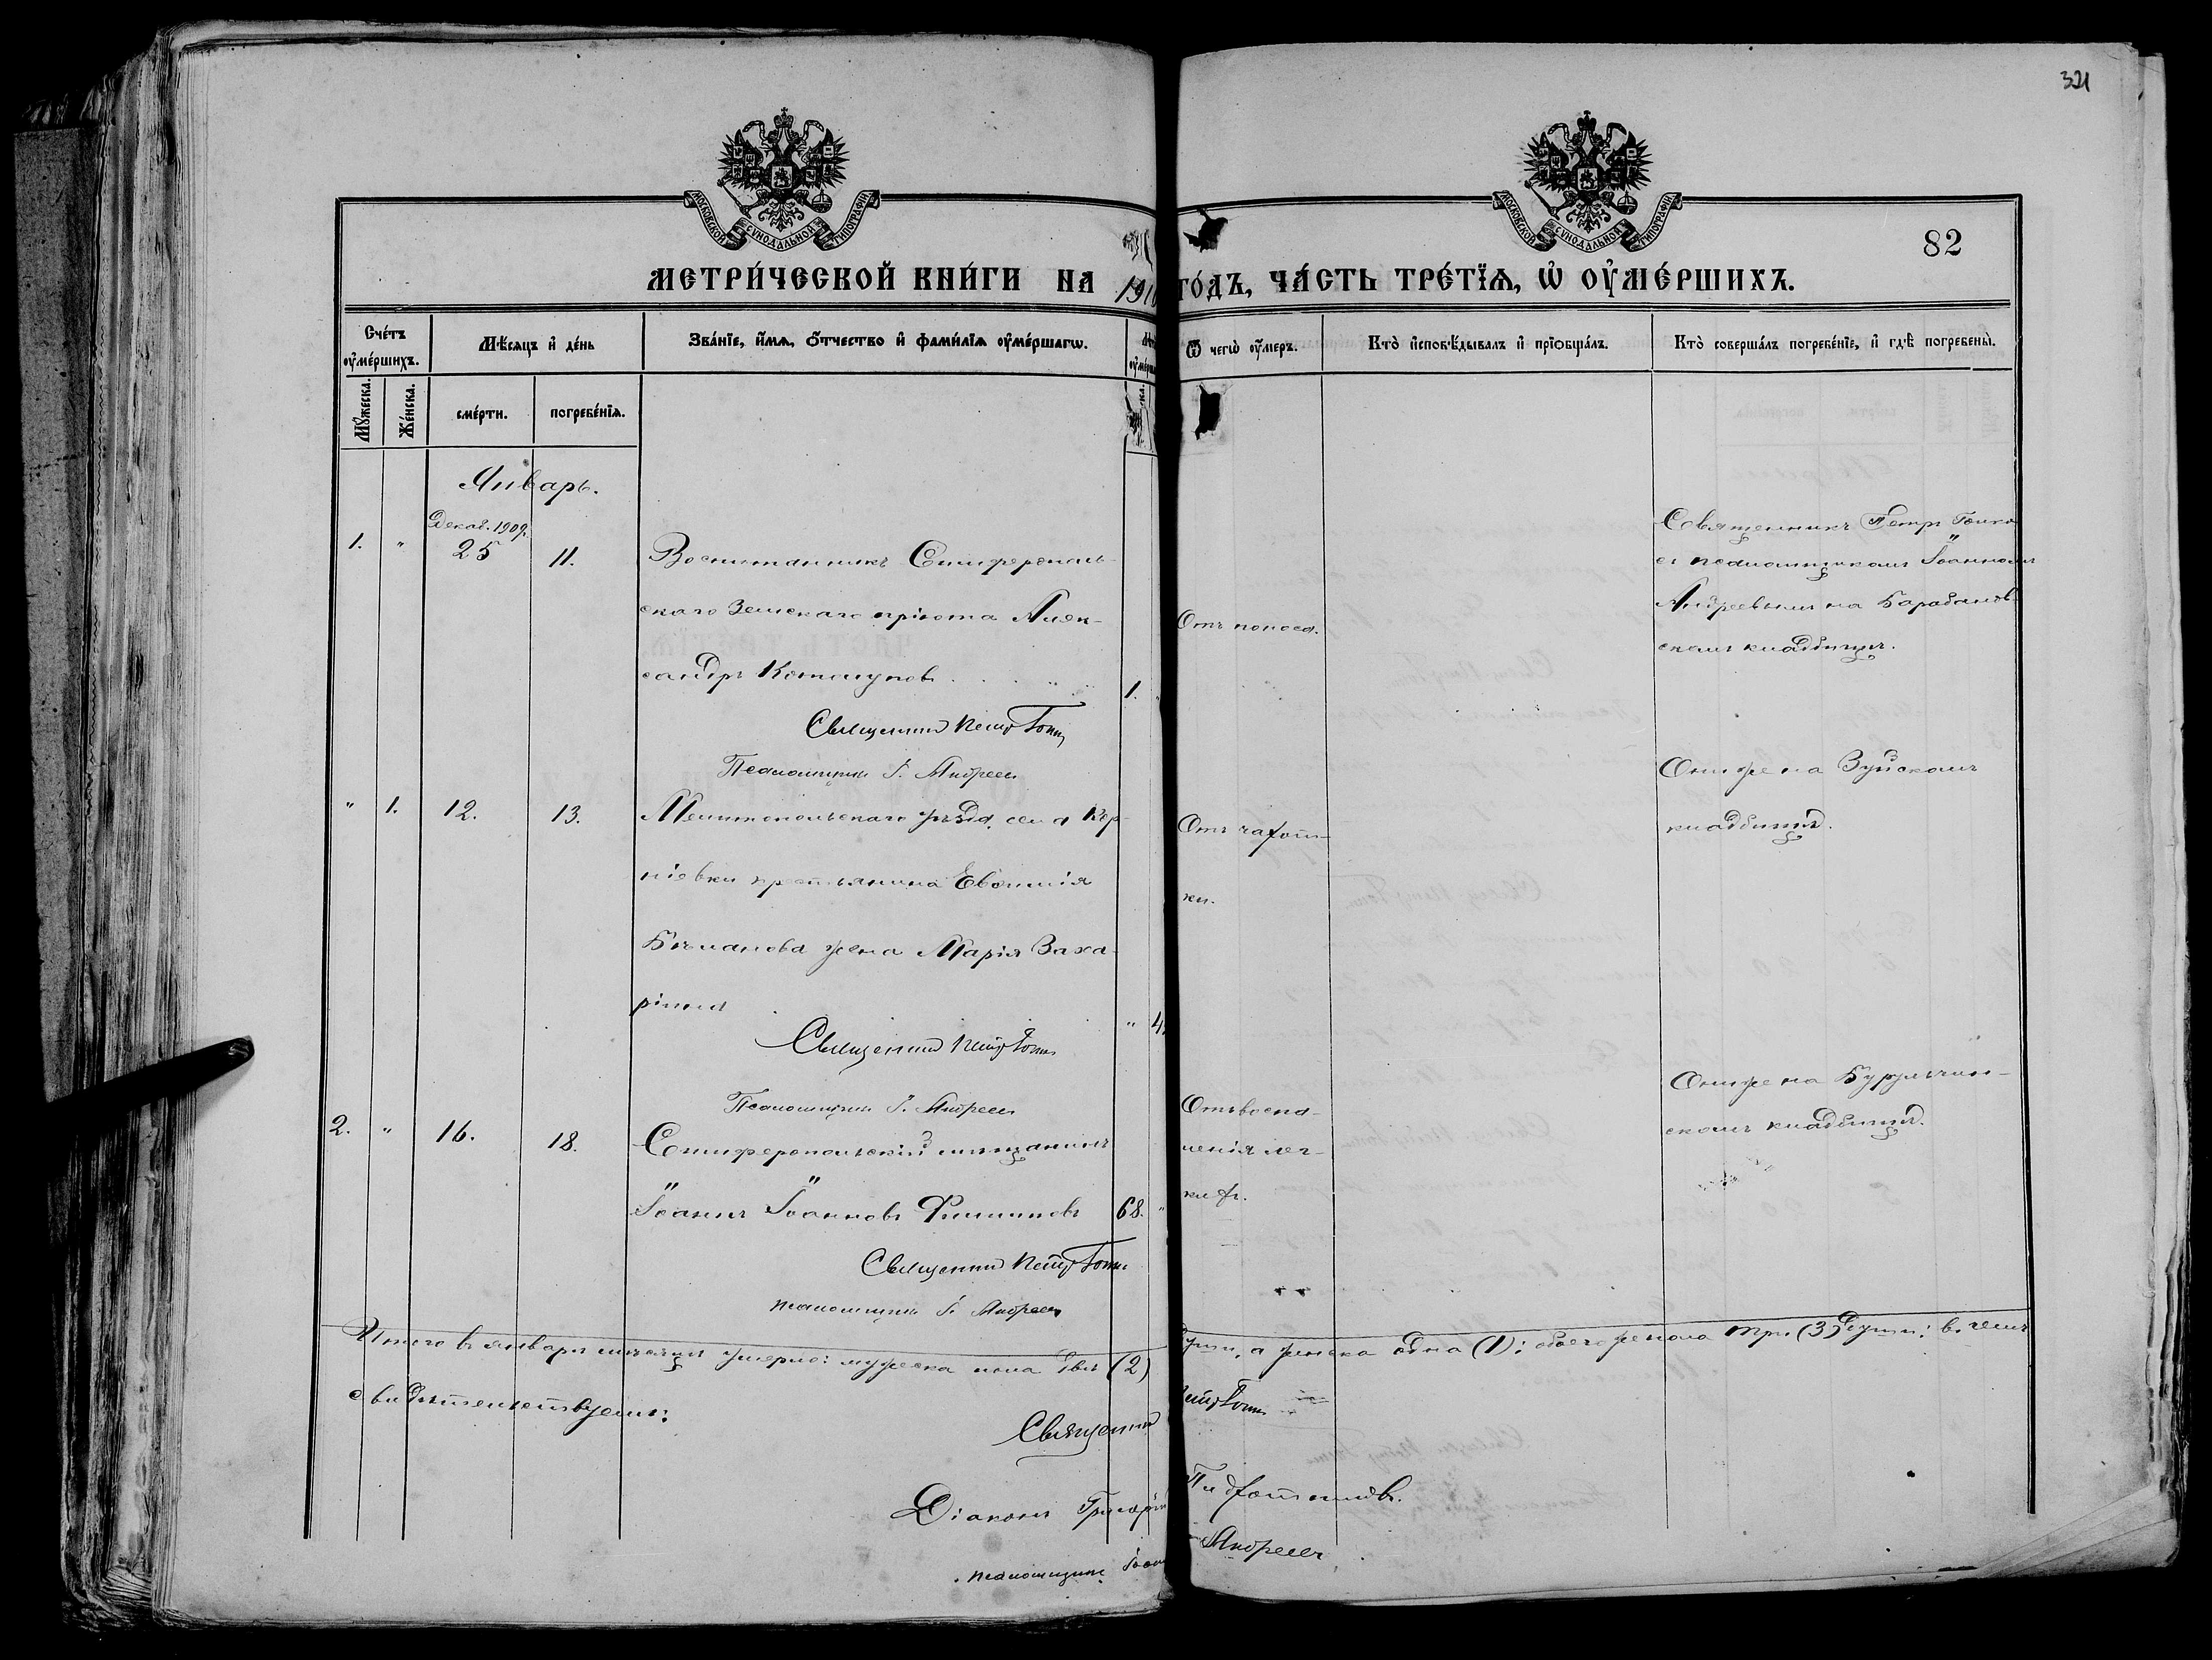 321
МОСКОВСКОЙ СѴНОДАЛЬНОЙ ТИПОГРАФІИ
МОСКОВСКОЙ СѴНОДАЛЬНОЙ ТИПОГРАФІИ
82
МЕТРИ́ЧЕСКОЙ КНИ́ГИ НА 1910 ГО́ДЪ, ЧА́СТЬ ТРЕ́ТЇѦ, Ѡ҆ ОУ҆МЕ́РШИХЪ.
Сче́тъ оу҆ме́ршихъ.
Мꙋ́жеска.
Же́нска.
Мѣ́сяцъ и҆ де́нь
сме́рти.
погребе́нїѧ.
Зва́нїе, и҆́мѧ, ѻ҆́тчество и҆ фами́лїѧ оу҆ме́ршагѡ.
Ѿ чегѡ̀ оу҆́меръ.
Кто̀ и҆сповѣ́дывалъ и҆ прїѡбща́лъ.
Кто̀ соверша́лъ погребе́нїе, и҆ гдѣ̀ погребены̀.
Январь.
Декаб. 1909.
1. " 25 11.
Воспитанникъ Симферополь-
скаго Земскаго пріюта Алек-
сандръ Котолуповъ
1.
Священникъ Петръ
Псаломщикъ І. Андреевъ
Отъ поноса.
Священникъ Петръ
съ псаломщикомъ Іоанномъ
Андреевымъ на Барабанов-
скомъ кладбищѣ.
" 1. 12. 13.
Мелитопольскаго уѣзда, села Кор-
ніевки крестьянина Евѳимія
Бѣжанова жена Марія Заха-
ріина
" 4
Священникъ Петръ
Псаломщикъ І. Андреевъ
Отъ чахот-
ки.
Онъ же на Зуйскомъ
кладбищѣ.
2. " 16. 18.
Симферопольскій мѣщанинъ
Іоаннъ Іоанновъ Филиповъ 68. "
Священникъ Петръ
псаломщикъ І. Андреевъ
Отъ воспа-
ленія лег-
кихъ.
Онъ же на Бурульчин-
скомъ кладбищѣ.
Итого въ январѣ мѣсяцѣ умерло: мужеска пола двѣ (2) души, а женска одна (1); обоего же пола три (3) души; въ чемъ
свидѣтельствуемъ:
Священникъ Петръ
Діаконъ Григорій
псаломщикъ Іоаннъ Андреевъ